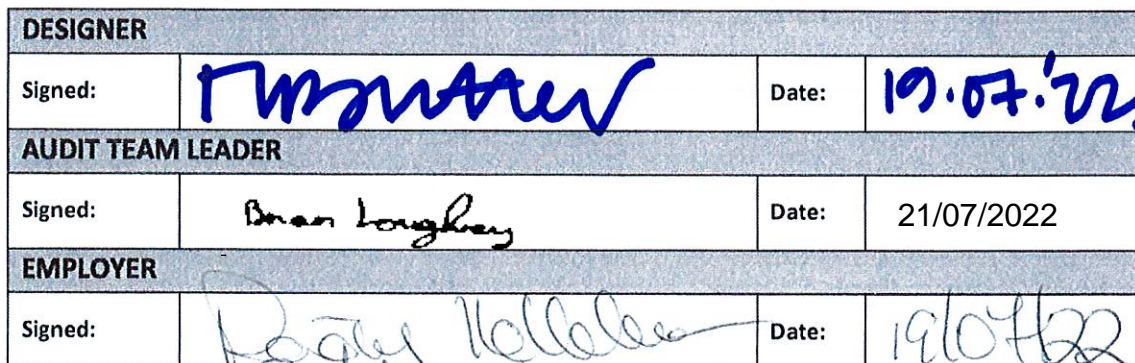 DESIGNER
Signed: Date: 19.07.'22
AUDIT TEAM LEADER
Signed: Brian Loughrey Date: 21/07/2022
EMPLOYER
Signed: Date: 19/07/22